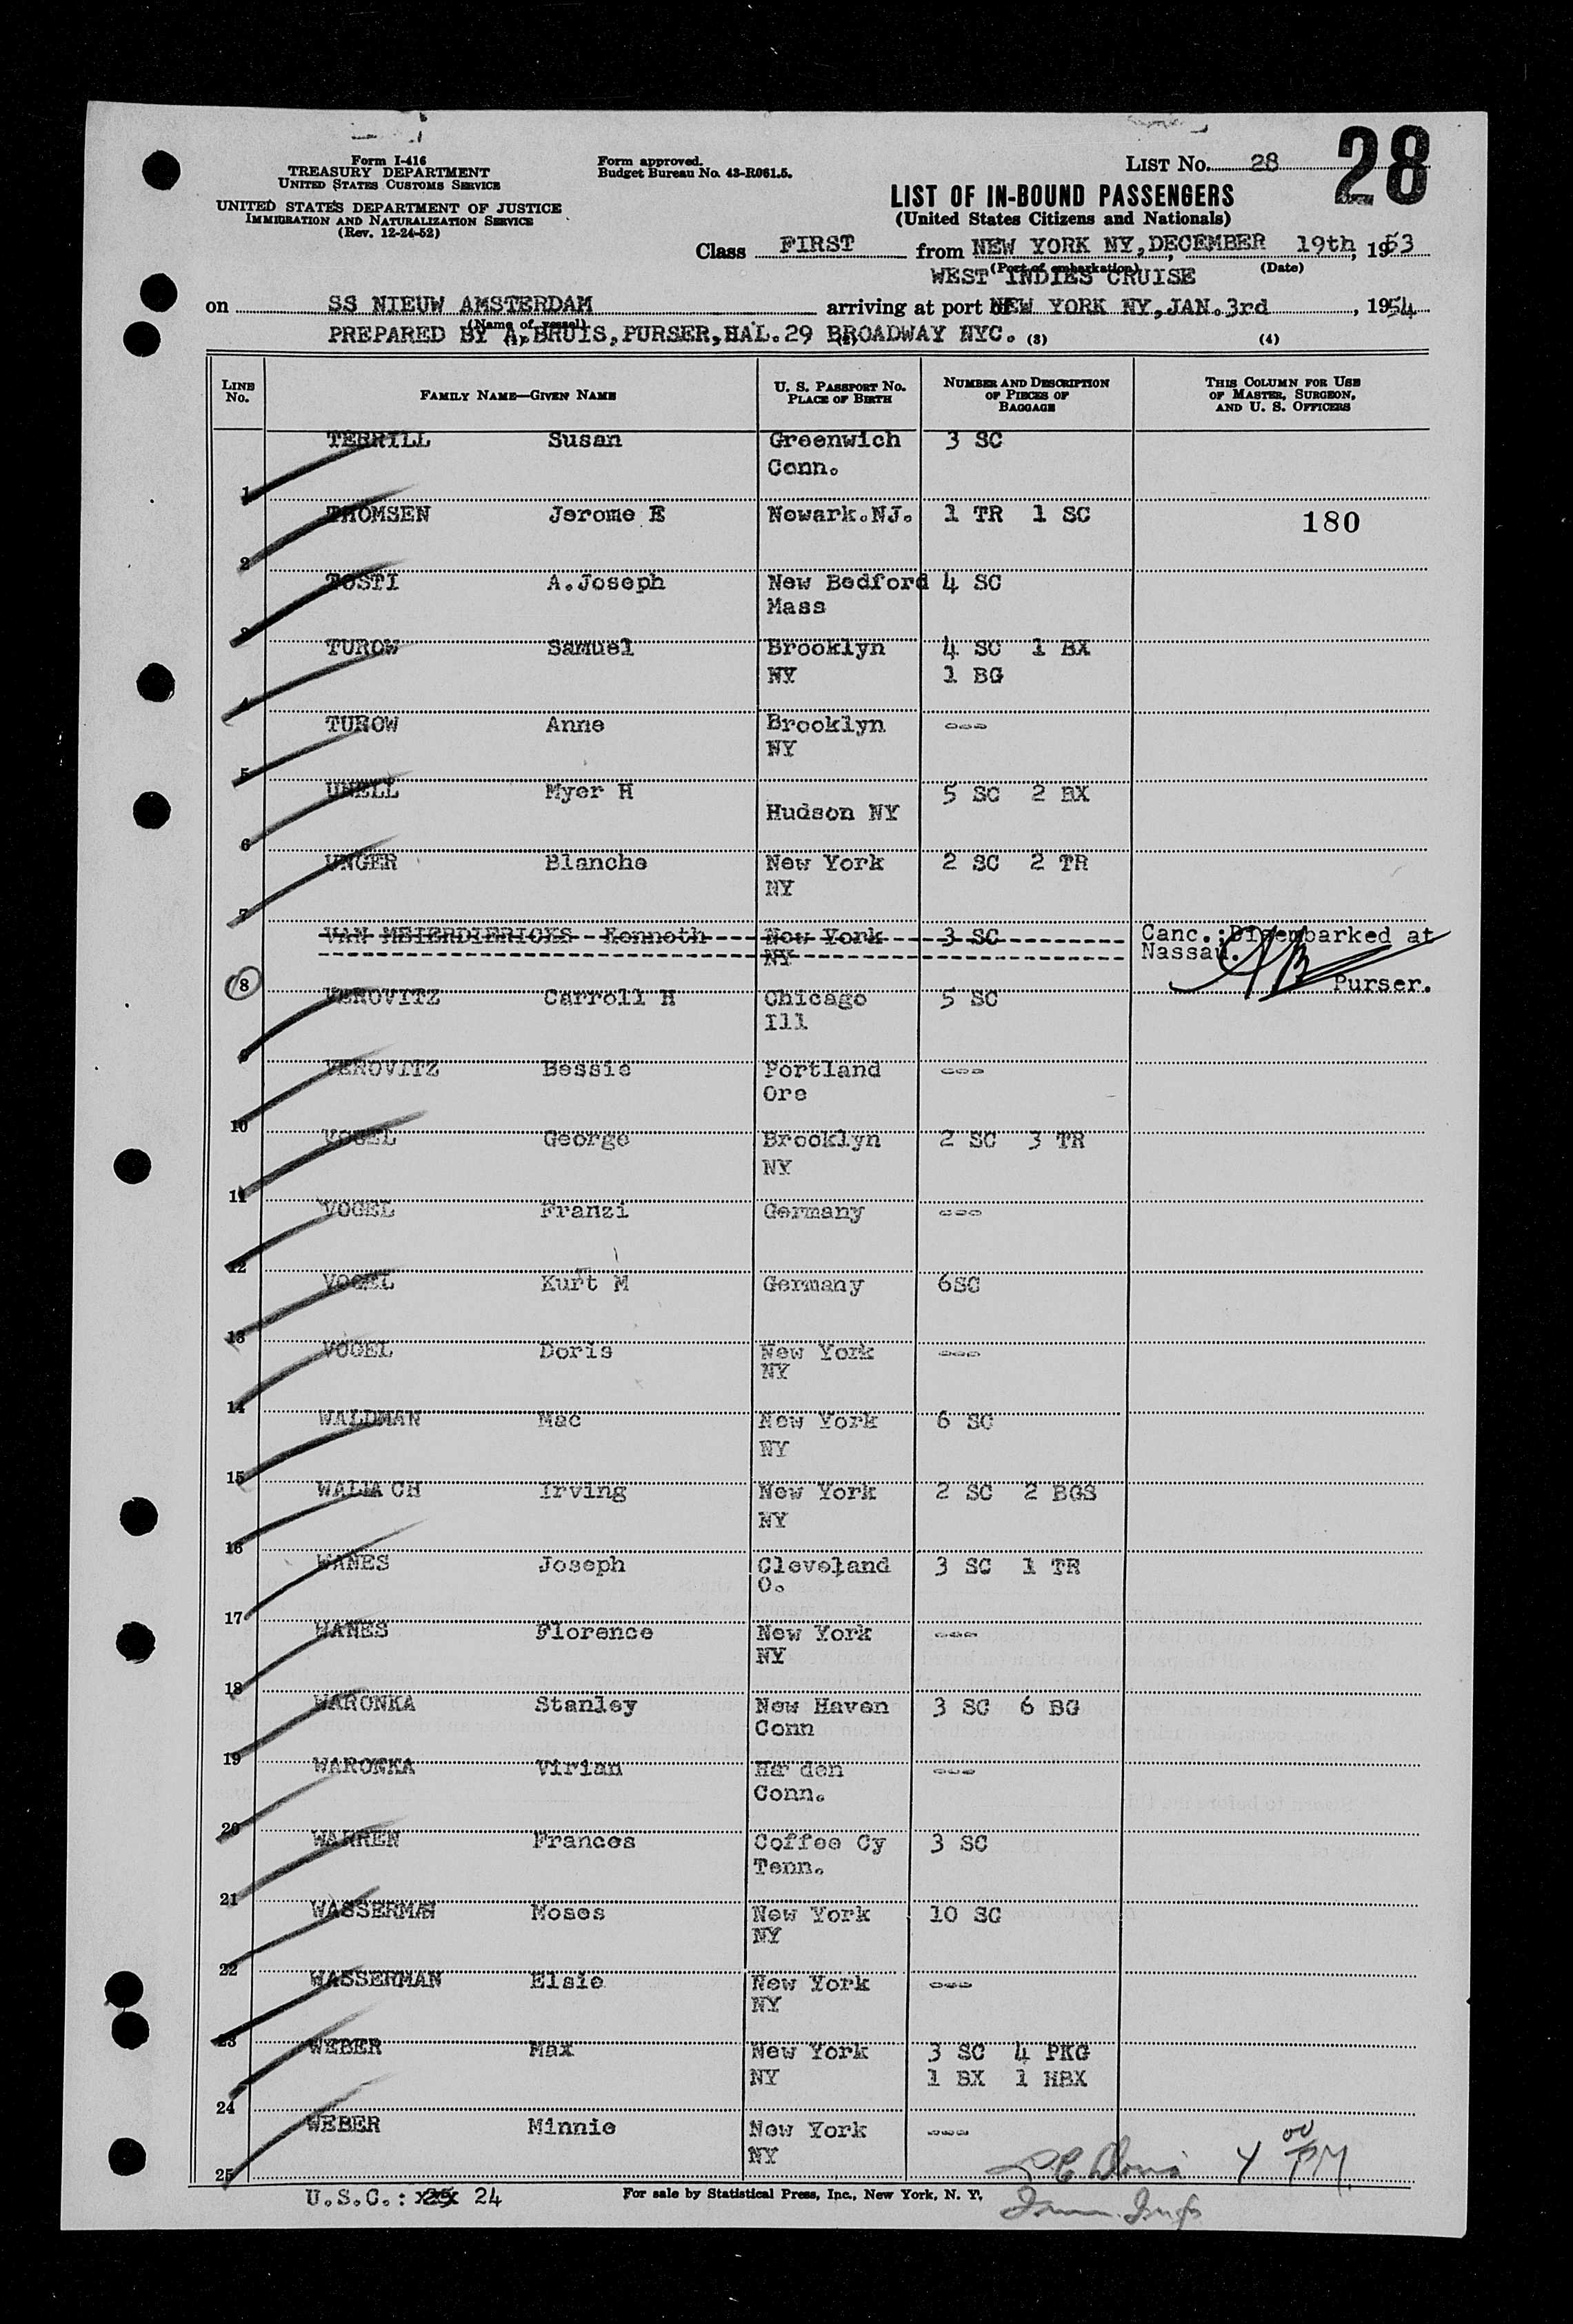 Form I-416
TREASURY DEPARTMENT
UNITED STATES CUSTOMS SERVICE
UNITED STATES DEPARTMENT OF JUSTICE
IMMIGRATION AND NATURALIZATION SERVICE
(Rev. 12-24-52)
Form approved.
Budget Bureau No. 43-R061.5.
LIST NO. 28
28
LIST OF IN-BOUND PASSENGERS
(United States Citizens and Nationals)
Class FIRST from NEW YORK NY, DECEMBER 19th, 1953
(Port of embarkation) (Date)
WEST INDIES CRUISE
on SS NIEUW AMSTERDAM arriving at port NEW YORK NY, JAN. 3rd, 1954
(Name of vessel)
PREPARED BY A. BRUIS, PURSER, HAL. 29 BROADWAY NYC.
(1) (2) (3) (4)
LINE No. FAMILY NAME—GIVEN NAME U. S. PASSPORT NO. PLACE OF BIRTH NUMBER AND DESCRIPTION OF PIECES OF BAGGAGE THIS COLUMN FOR USE OF MASTER, SURGEON, AND U. S. OFFICERS
1 TERRILL Susan Greenwich Conn. 3 SC
2 THOMSEN Jerome E Newark.NJ. 1 TR 1 SC 180
3 TOSTI A.Joseph New Bedford Mass 4 SC
4 TUROW Samuel Brooklyn NY 4 SC 1 BX 1 BG
5 TUROW Anne Brooklyn NY ---
6 UNELL Myer H Hudson NY 5 SC 2 BX
7 UNGER Blanche New York NY 2 SC 2 TR
8 VAN MEIERDIERICKS Kenneth New York NY 3 SC Canc.:Disembarked at Nassau. AB Purser.
9 VENOVITZ Carroll H Chicago Ill 5 SC
10 VENOVITZ Bessie Portland Ore ---
11 VOGEL George Brooklyn NY 2 SC 3 TR
12 VOGEL Franzi Germany ---
13 VOGEL Kurt M Germany 6SC
14 VOGEL Doris New York NY ---
15 WALDMAN Mac New York NY 6 SC
16 WALLACH Irving New York NY 2 SC 2 BGS
17 WANES Joseph Cleveland O. 3 SC 1 TR
18 WANES Florence New York NY ---
19 WARONKA Stanley New Haven Conn 3 SC 6 BG
20 WARONKA Virian Ha den Conn. ---
21 WARREN Frances Coffee Cy Tenn. 3 SC
22 WASSERMAN Moses New York NY 10 SC
23 WASSERMAN Elsie New York NY ---
24 WEBER Max New York NY 3 SC 4 PKG 1 BX 1 HBX
25 WEBER Minnie New York NY ---
4 00 PM
U.S.C.: 25 24
For sale by Statistical Press, Inc., New York, N. Y.
Imm. Insp